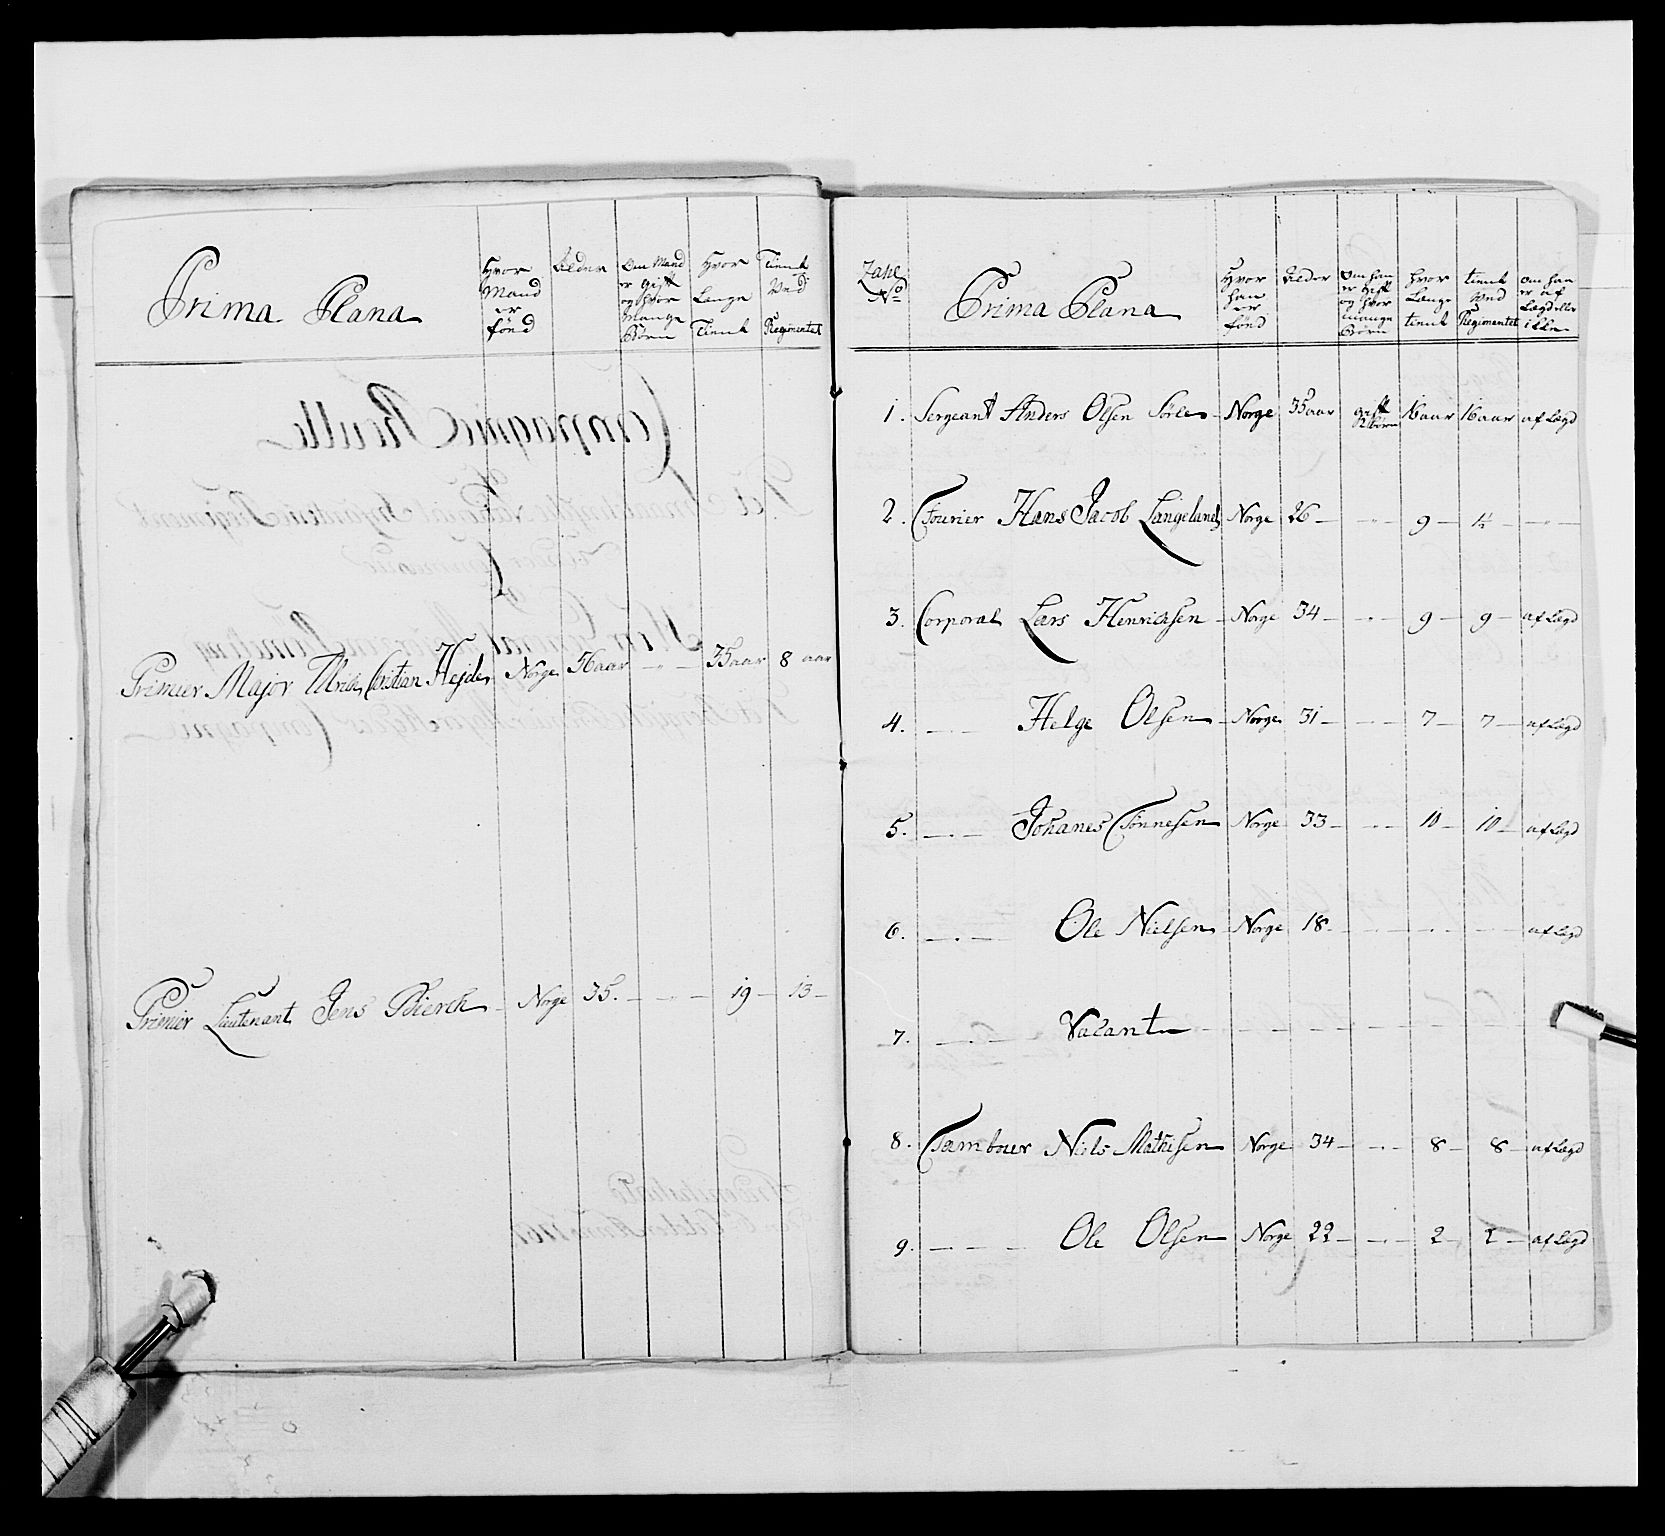 Prima Plana
Hvor Mand er fönd
Alder
Om Mand er gift og hvor Mange Börn
Hvor Lange Tient
Tient Ved Regimentet
Primier Major Christian Norge 56 aar - " - 35 aar 8 aar
Primier Lieutenant Jens Bierch Norge 35. - " - 19 - 13 -
No
Prima Plana
Hvor han er fönd
Alder
Om han er Gift og hvor mange Börn
hvor Lange tient
tient Ved Regimentet
Om han er af Lægd eller ikke
1. Sergeant Anders Olsen Norge 35 aar gift börn 16 aar 16 aar af Lægd
2. Fourier Hans Jacob Langeland Norge 26 - - " - 9 - 1½ - - " -
3. Corporal Lars Henrichsen Norge 34 - - " - 9 - 9 - af Lægd
4. - " - Helge Olsen Norge 31 - - " - 7 - 7 - af Lægd
5. - " - Johanes Tönnesen Norge 33 - - " - 10 - 10 - af Lægd
6. - " - Ole Nielsen Norge 18 - - - af Lægd
7. - " - Vacant
8. Tambour Niels Mathisen Norge 34 - - " - 8 - 8 - af Lægd
9. - - - Ole Olsen Norge 22 - - " - 2 - 2 - af Lægd